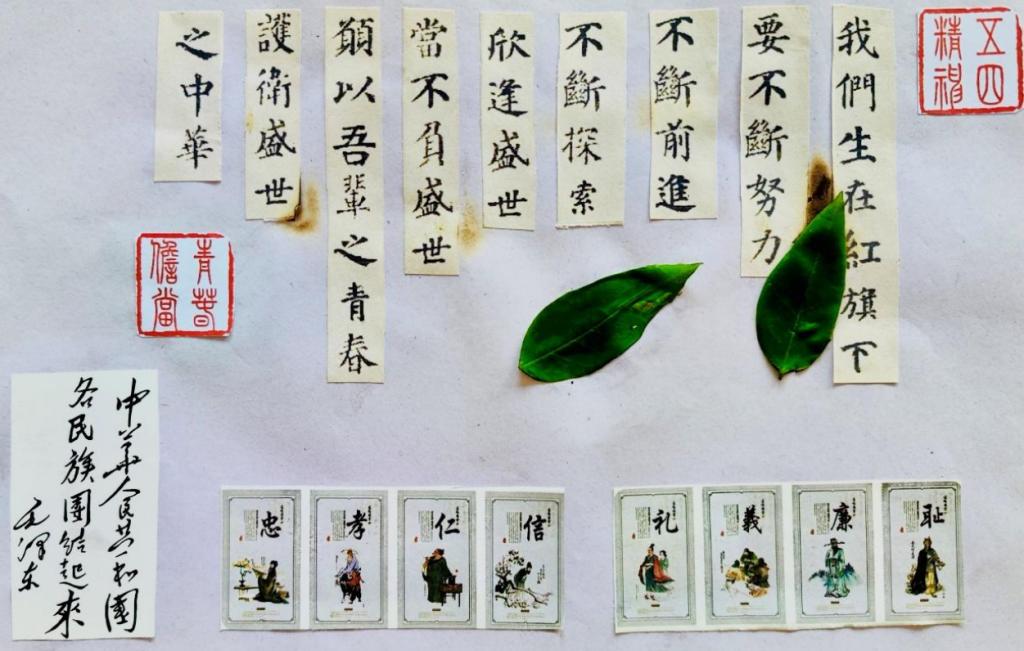 五四
精神
我們生在紅旗下
要不斷努力
不斷前進
不斷探索
欣逢盛世
當不負盛世
願以吾輩之青春
護衛盛世
之中華
青春
擔當
中华人民共和國
各民族團結起來
毛澤东
忠
孝
仁
信
礼
義
廉
耻